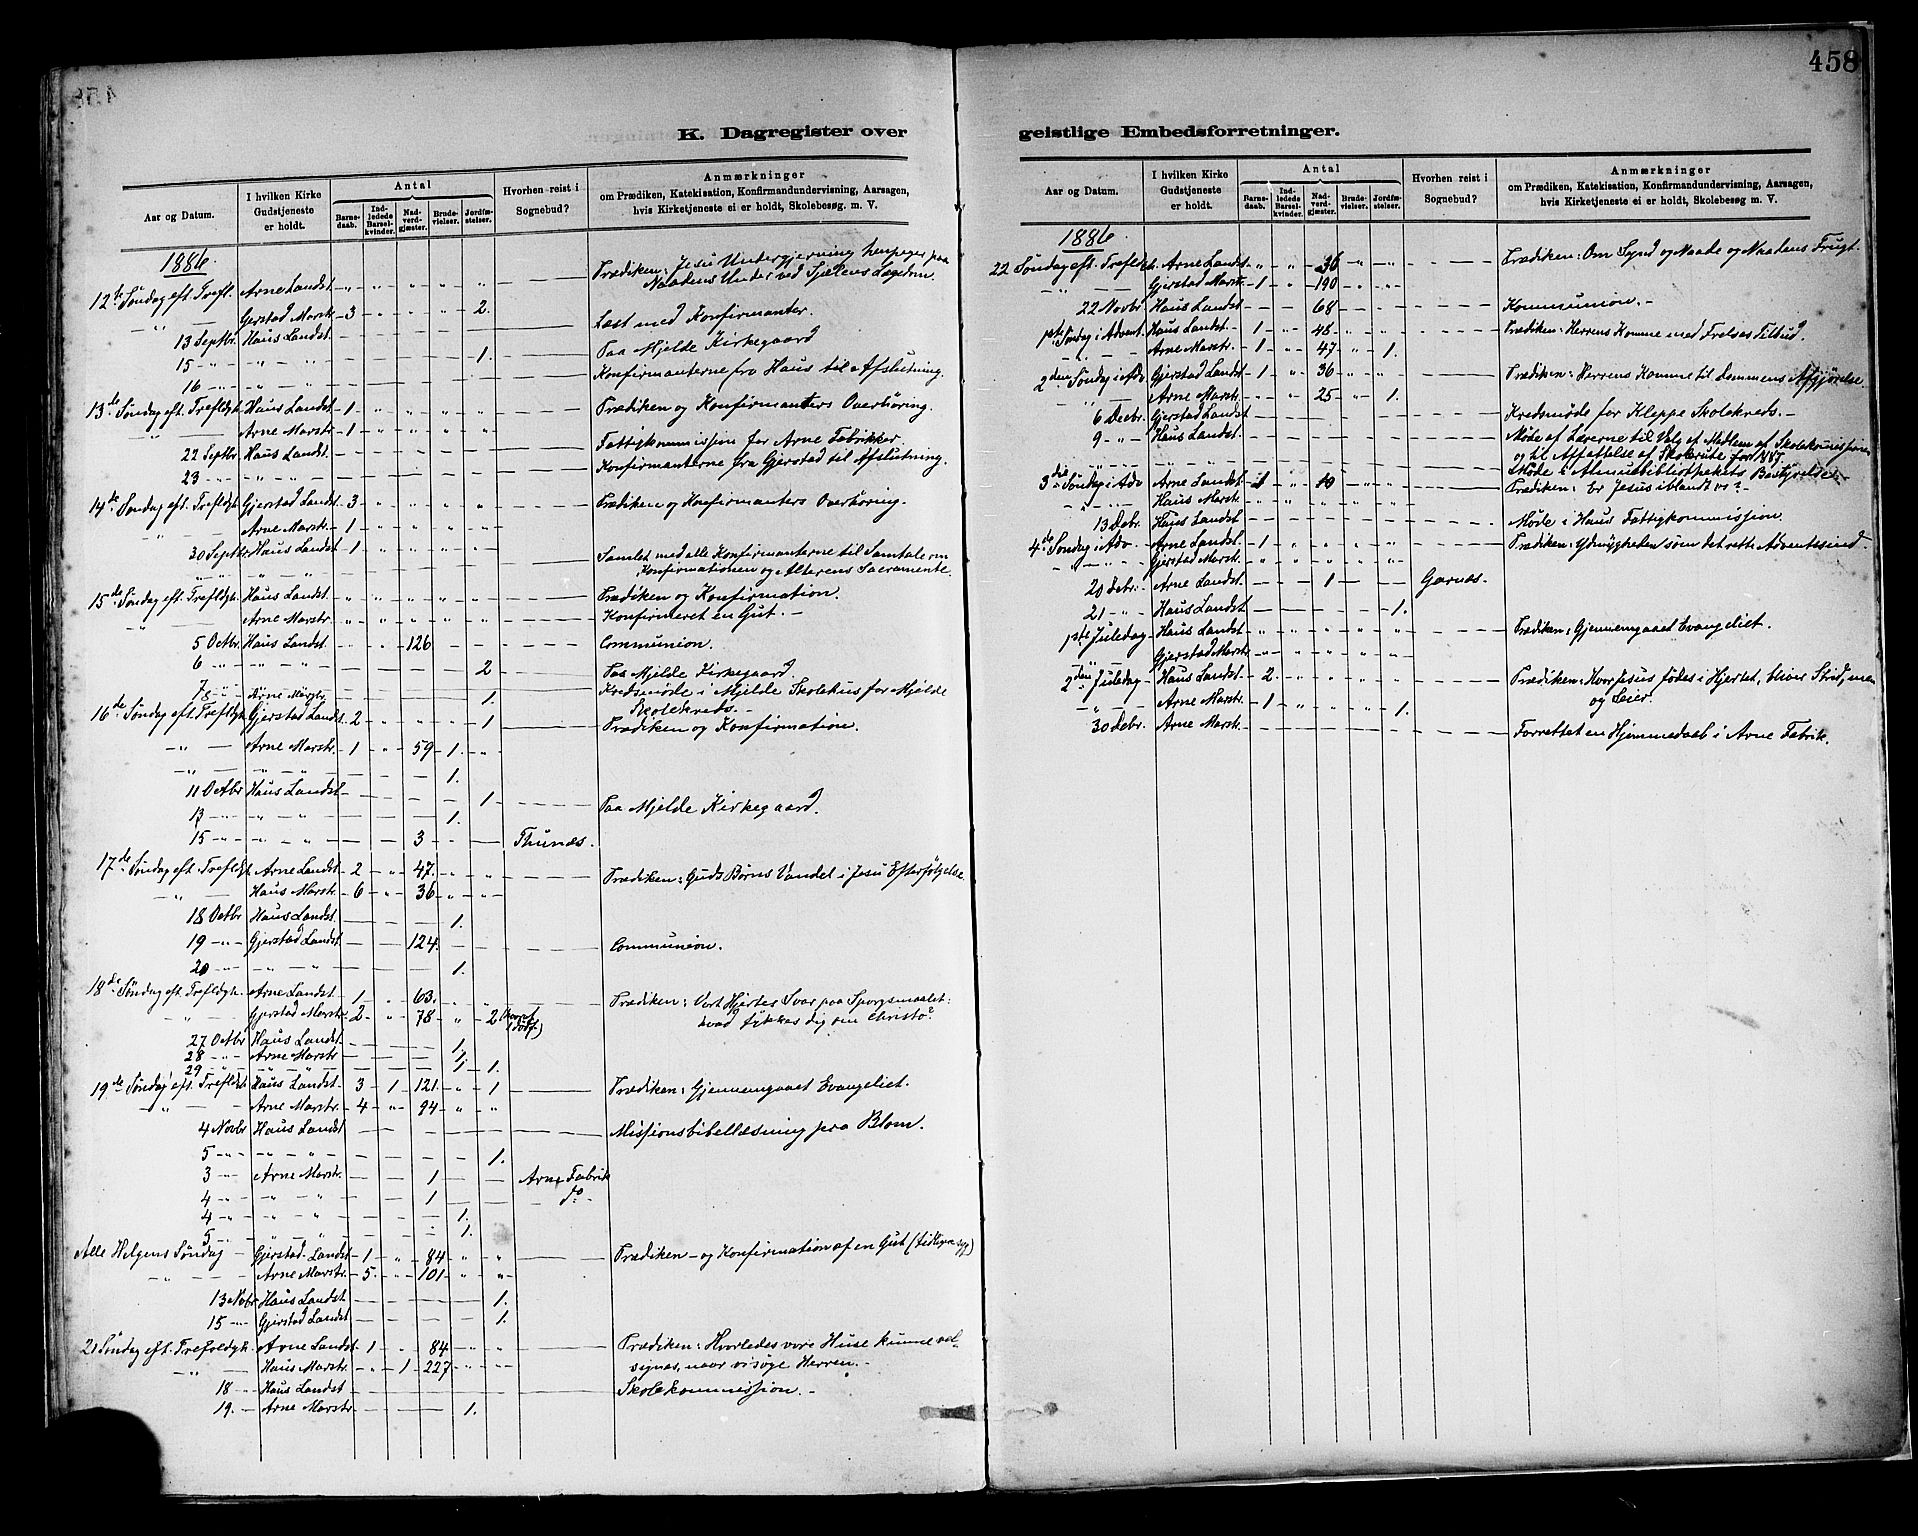 458
K. Dagregister over
Aar og Datum. I hvilken Kirke Gudstjeneste er holdt. Antal Barnedaab. Indledede Barselkvinder. Nadverdgjæster. Brudevielser. Jordfæstelser. Hvorhen reist i Sognebud? Anmærkninger om Prædiken, Katekisation, Konfirmandundervisning, Aarsagen, hvis Kirketjeneste ei er holdt, Skolebesøg m. V.
1886.
12te Søndag eft. Trefl. Arne Landst. Prædiken: Jesu Undergjerning henpeger paa
Naadens Under ved Sjælens Lægedom
— " — Gjerstad Marstr. 3 " " " 2.
13 Septbr. Haus Landst. Læst med Konfirmanter.
15 " " — " 1. Paa Mjelde Kirkegaard
16 " " — " Konfirmanterne fra Haus til Afslutning.
13de Søndag eft. Trefldgh. Haus Landst. 1 " " " " Prædiken og Konfirmanters Overhøring.
— " — Arne Marstr. 1 " " " "
22 Septbr. Haus Landst. Fattigkommission for Arne Fabrikker.
23 " " " — " Konfirmanterne fra Gjerstad til Afslutning.
14de Søndag eft. Trefldgh. Gjerstad Landst. 3 " " " " Prædiken og Konfirmanters Overhøring.
— " — Arne Marstr. 1 " " " "
30 Septbr. Haus Landst. 1 " " " "
" " " — " Samlet med alle Konfirmanterne til Samtale om
Konfirmationen og Alterens Sacramente.
15de Søndag eft. Trefldgh. Haus Landst. " " " " " Prædiken og Konfirmation.
— " — Arne Marstr. " " " " " Konfirmeret en Gut. —
5 Octbr. Haus Landst. " " 126 Communion.
6 " " — " 2 Paa Mjelde Kirkegaard.
7 " " Kredsmøde i Mjelde Skolehus for Mjelde
8 " Arne Marstr. 1. Skolekreds. —
16de Søndag eft. Trefldgh. Gjerstad Landst. 2 " " " 1 Prædiken og Konfirmation.
— " — Arne Marstr. 1 " 59 1. "
— " — " — " 1.
11 Octbr. Haus Landst. 1 Paa Mjelde Kirkegaard.
13 " " — " 1.
15 " " " " 3 Thunæs.
17de Søndag eft. Trefldgh. Arne Landst. 2 " 47. " " Prædiken: Guds Børns Vandel i Jesu Efterfølgelse
— " — Haus Marstr. 6 " 36 " "
18 Octbr. Haus Landst. 1.
19 " Gjerstad Landst. 124. Communion.
20 " " — " 1.
18de Søndag eft. Trefldgh. Arne Landst. 1 " 63. " " Prædiken: Vort Hjertes Svar paa Spørgsmaalet:
— " — Gjerstad Marstr. 2 " 78 " 2 hvad tykkes dig om Christo?
27 Octbr. Haus Landst. 1.
28 " Arne Marstr. 1.
29 " " — " 1.
19de Søndag eft. Trefldgh. Haus Landst. 3 1 121. " 1 Prædiken: Gjennemgaaet Evangeliet.
— " — Arne Marstr. 4 " 94 " "
4 Novbr. Haus Landst. Missionsbibellæsning paa Blom.
5 " " — " 1.
3 " Arne Marstr. 1 Arne Fabrik
4 " " " 1 do
4 " " — " 1.
5 " " — " 1.
Alle Helgens Søndag Gjerstad Landst. 1 " 84 " " Prædiken — og Konfirmation af en Gut (tidligere syg)
— " — Arne Marstr. 5 " 101 " "
13 Novbr. Haus Landst. 1.
15 " Gjerstad Landst. 1.
21 Søndag eft. Trefoldgh. Arne Landst. 1 " 84 " " Prædiken: Hvorledes vore Huse kunne vel-
— " — Haus Marstr. " 1 227 " " signes, naar vi søge Herren. —
18 — Haus Landst. Skolekommission. —
19. — Arne Marstr. 1.
458
geistlige Embedsforretninger.
Aar og Datum. I hvilken Kirke Gudstjeneste er holdt. Antal Barnedaab. Indledede Barselkvinder. Nadverdgjæster. Brudevielser. Jordfæstelser. Hvorhen reist i Sognebud? Anmærkninger om Prædiken, Katekisation, Konfirmandundervisning, Aarsagen, hvis Kirketjeneste ei er holdt, Skolebesøg m. V.
1886.
22 Søndag eft. Trefldgh. Arne Landst. " " 36 " " Prædiken: Om Synd og Naade og Naadens Frugt.
— " — Gjerstad Marstr. 1 " 190 " "
22 Novbr. Haus Landst. " 68 Kommunion. —
1ste Søndag i Advent. Haus Landst. 1 " 48 " " Prædiken: Herrens Komme med Frelses Tilbud.
— " — Arne Marstr. 1 " 47 " 1.
2den Søndag i Adv. Gjerstad Landst. 1 " 36 " " Prædiken: Herrens Komme til Dommens Afgjørelse
Arne Marstr. " " 25 " 1.
6 Decbr. Gjerstad Landst. Kredsmøde for Kleppe Skolekreds. —
9 " Haus Landst. Møde af Lærerne til Valg af Medlem af Skolekommissionen
og til Affattelse af Skolerute for 1887.
" " — " Møde i Almuebibliothekets Bestyrelse. —
3die Søndag i Adv. Arne Landst. 1 " 10 " " Prædiken: Er Jesus iblandt os? —
— " — Haus Marstr. " " " " "
13 Debr. Haus Landst. Møde i Haus Fattigkommission.
4de Søndag i Adv Arne Landst. 1 " " " " Prædiken: Ydmygheden som det rette Adventssind.
— " — Gjerstad Marstr. " " " " "
20 Debr. Arne Landst. 1 Garnæs.
21 " Haus Landst. 1.
1ste Juledag Haus Landst. " " " " " Prædiken: Gjennemgaaet Evangeliet.
" Gjerstad Marstr. " " " " "
2den Juledag Haus Landst. 2. " " " " Prædiken: Hvor Jesus fødes i Hjertet, bliver Strid, men
— " — Arne Marstr. 1 " " " 1. og Seier.
30 Debr. Arne Marstr. Forrettet en Hjemmedaab i Arne Fabrik.